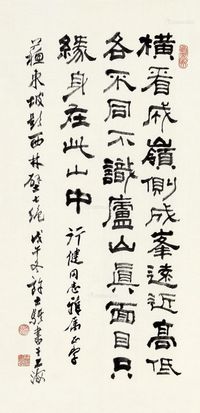 橫看成嶺側成峯遠近高低
各不同不識廬山真面目只
緣身在此山中 行健同志雅屬正字
蘇東坡題西林壁七絕 戊午冬 書于上海